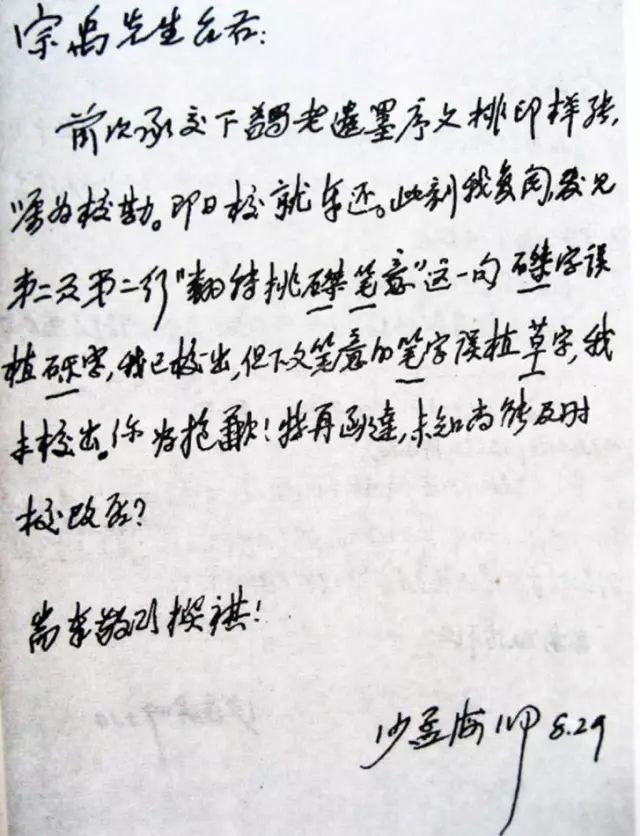 宗禹先生台右:
前次承交下蠲老遗墨序文排印样张,
嘱为校勘。即日校就奉还。此刻我复阅,发见
第二页第二行“翻能挑磔笔意”这一句 磔字误
植砾字,我已校出,但下文笔意的笔字误植草字,我
未校出。深为抱歉!特再函达,未知尚能及时
校改否?
耑奉敬颂撰祺!
沙孟海 8.29